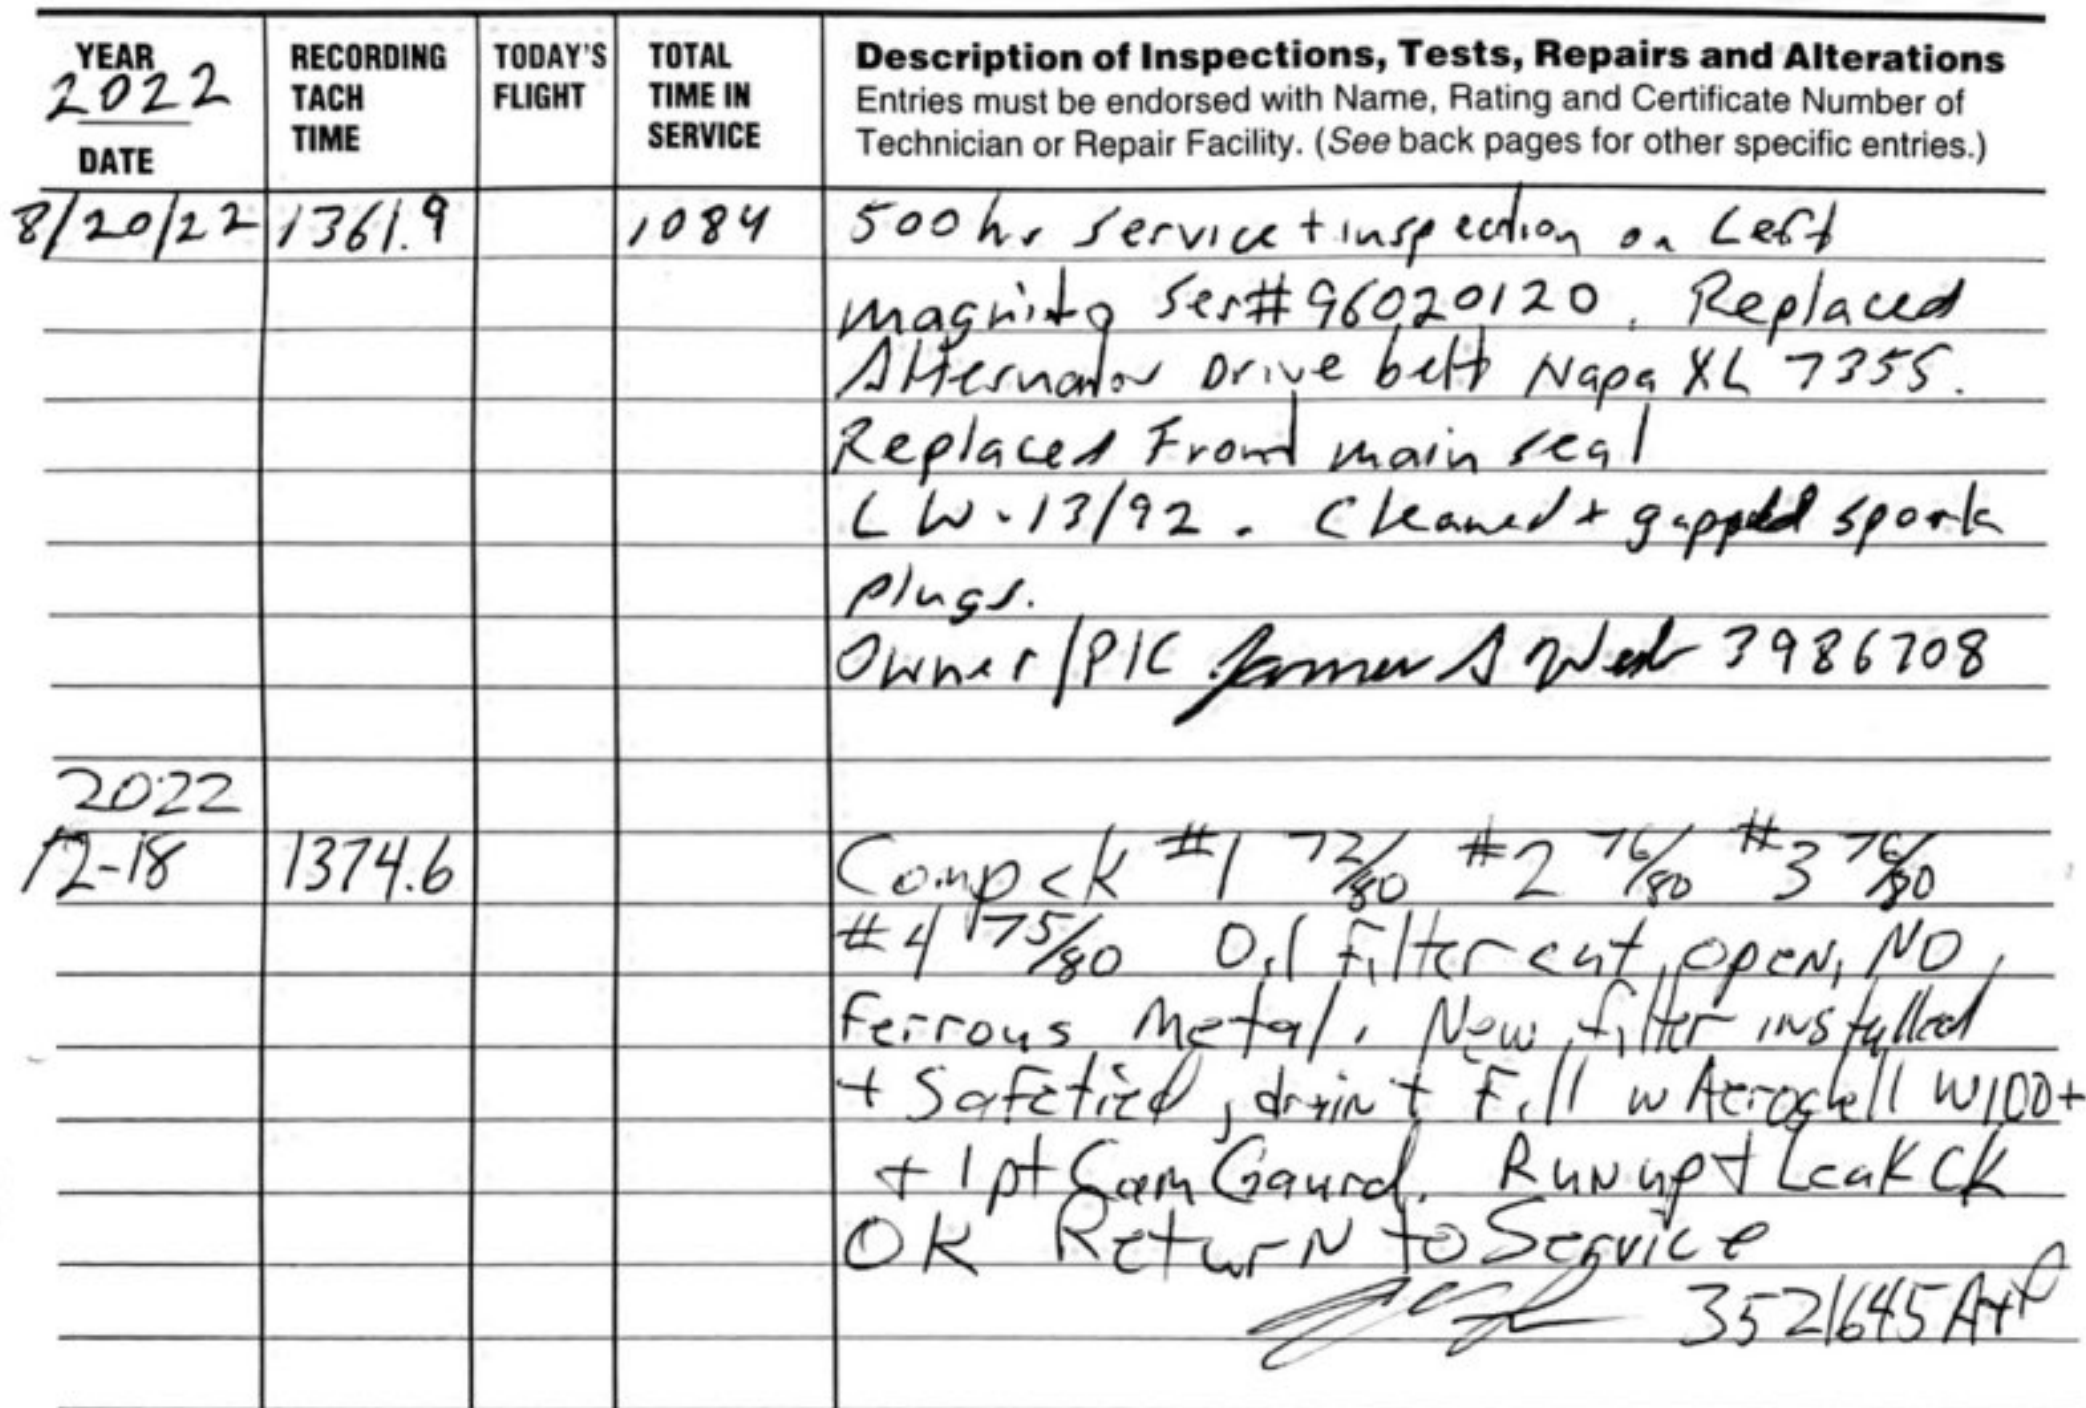 YEAR RECORDING TODAY'S TOTAL Description of Inspections, Tests, Repairs and Alterations
2022 TACH FLIGHT TIME IN Entries must be endorsed with Name, Rating and Certificate Number of
DATE TIME SERVICE Technician or Repair Facility. (See back pages for other specific entries.)
8/20/22 1361.9 1084 500 hr service + inspection on Left
magnito Ser# 96020120. Replaced
Alternator Drive belt Napa XL 7355.
Replaced Front main seal
LW-13192. Cleaned + gapped spark
plugs.
Owner/PIC James A 3986708
2022
12-18 1374.6 Comp ck #1 72/80 #2 76/80 #3 76/80
#4 75/80 Oil Filter cut open, NO
Ferrous Metal, New filter installed
+ Safetied, drain + Fill w Aeroshell W100+
+ 1pt Cam Gaurd. Runup + Leak CK
OK Return to Service
3521645 A+P